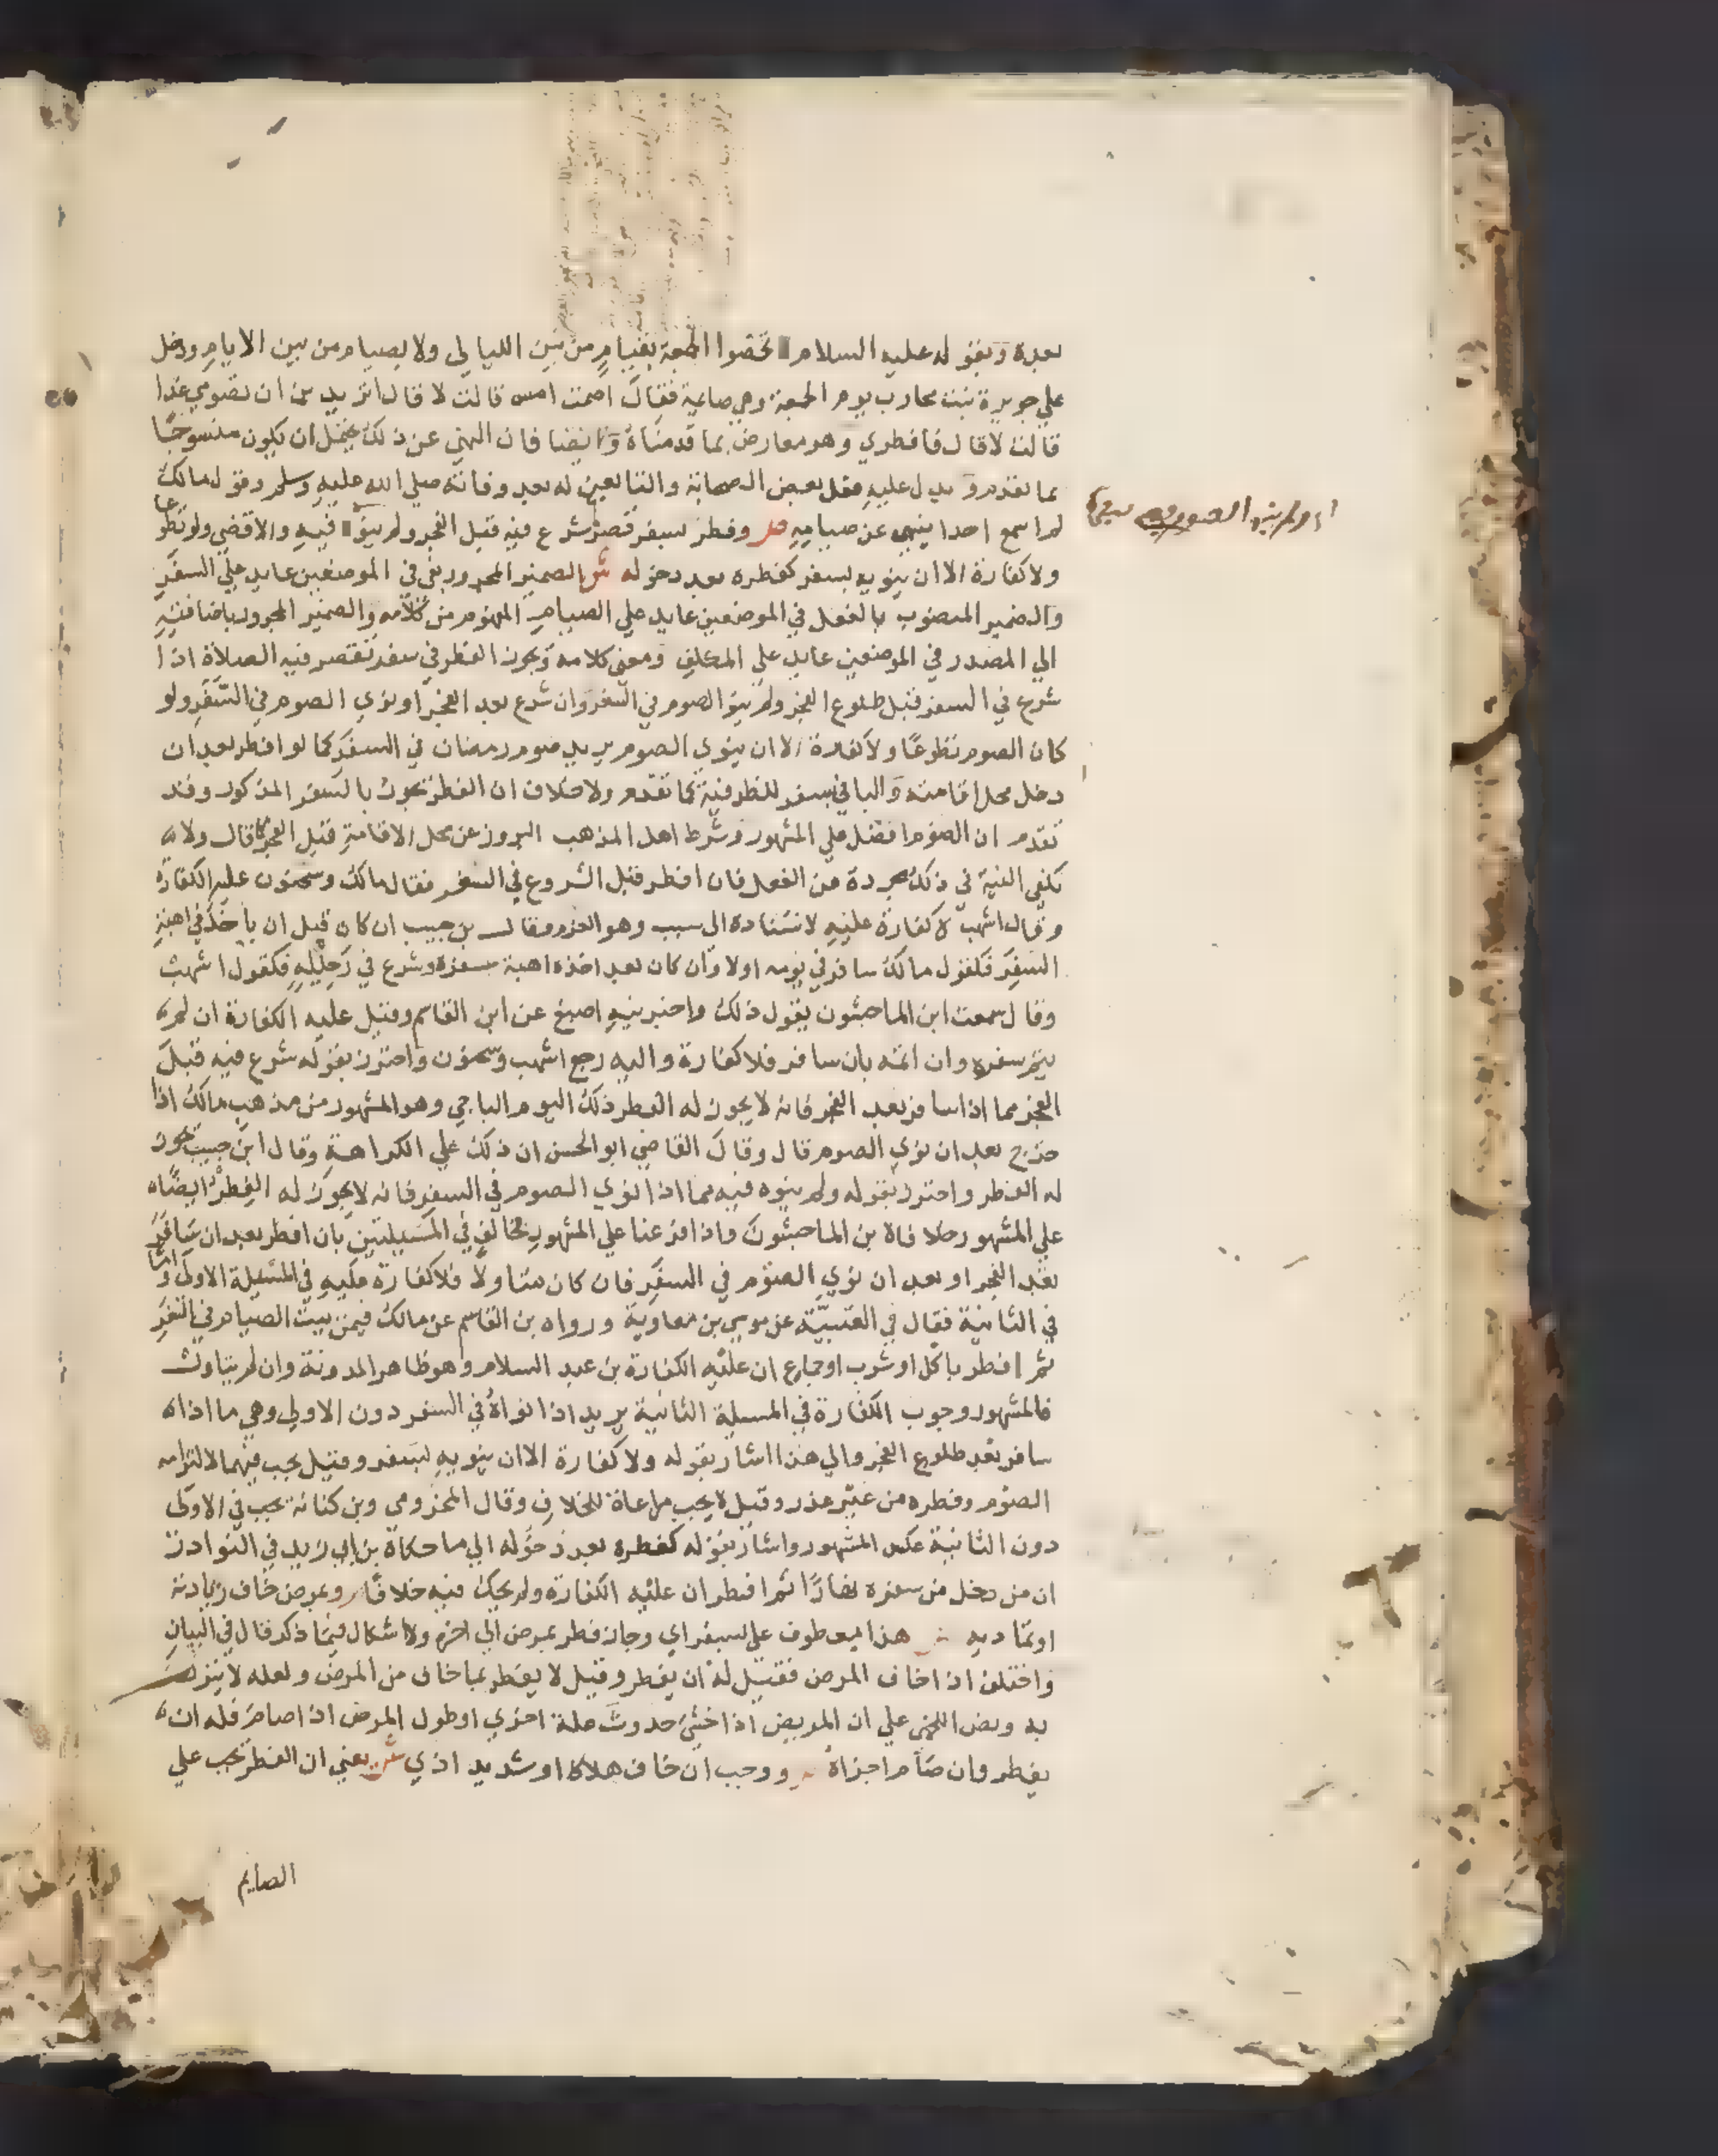 بعده وبقوله عليه السلام لا تخصوا الجمعة بقيام من بين الليالي ولا بصيام من بين الايام ودخل
علي جويرية بنت محارب يوم الجمعة وهي صايمة فقال اصمت امس قالت لا قال اتريدين ان تصومي غدا
قالت لا قال فافطري وهو معارض بما قدمناه وايضا فان النهي عن ذلك يحتمل ان يكون منسوخا
بما تقدم ويدل عليه فعل بعض الصحابة والتابعين له بعد وفاته صلي الله عليه وسلم وقول مالك
لم اسمع احدا ينهي عن صيامه وفطر بسفر قصر شرع فيه قبل الفجر ولم ينو فيه والا قضي ولو تطوعا
ولا كفارة الا ان ينويه بسفر كفطره بعد دخوله ش الضمير المجرور بفي في الموضعين عايد علي السفر
والضمير المنصوب بالفعل في الموضعين عايد علي الصيام المفهوم من كلامه والضمير المجرور باضافته
الي المصدر في الموضعين عايد علي المكلف ومعني كلامه ويجوز الفطر في سفر تقصر فيه الصلاة اذا
شرع في السفر قبل طلوع الفجر ولم ينو الصوم في السفر وان شرع بعد الفجر او نوي الصوم في السفر ولو
كان الصوم تطوعا ولا كفارة الا ان ينوي الصوم يريد صوم رمضان في السفر كما لو افطر بعد ان
دخل محل اقامته والبا في بسفر للظرفية كما تقدم ولا خلاف ان الفطر يجوز بالسفر المذكور وقد
تقدم ان الصوم افضل علي المشهور وشرط اهل المذهب البروز عن محل الاقامة قبل الفجر كما قال ولا
تكفي النية في ذلك مجردة من الفعل فان افطر قبل الشروع في السفر فقال مالك وسحنون عليه الكفارة
وقال اشهب لا كفارة عليه لاستناده الى سبب وهو العزم وقال بن حبيب ان كان قبل ان ياخذ في اهبة
السفر فكقول مالك سافر في يومه اولا وان كان بعد اخذه اهبة سفره وشرع في رحيله فكقول اشهب
وقال سمعت ابن الماجشون يقول ذلك واخبرنيه اصبغ عن ابن القاسم وقيل عليه الكفارة ان لم
يتم سفره وان اتمه بان سافر فلا كفارة واليه رجع اشهب وسحنون واحترز بقوله شرع فيه قبل
الفجر مما اذا سافر بعد الفجر فانه لا يجوز له الفطر ذلك اليوم الباجي وهو المشهور من مذهب مالك اذا
خرج بعد ان نوي الصوم قال وقال القاضي ابو الحسن ان ذلك علي الكراهة وقال ابن حبيب يجوز
له الفطر واحترز بقوله ولم ينوه فيه مما اذا نوي الصوم في السفر فانه لا يجوز له الفطر ايضا
علي المشهور خلافا لابن الماجشون واذا فرعنا علي المشهور فخالف في المسيلتين بان افطر بعد ان سافر
بعد الفجر او بعد ان نوي الصوم في السفر فان كان متاولا فلا كفارة عليه في المسيلة الاولي واما
في الثانية فقال في العتبية عن موسي بن معاوية ورواه بن القاسم عن مالك فيمن بيت الصيام في السفر
ثم افطر باكل او شرب او جماع ان عليه الكفارة بن عبد السلام وهو ظاهر المدونة وان لم يتاول
فالمشهور وجوب الكفارة في المسيلة الثانية يريد اذا نواه في السفر دون الاولي وهي ما اذا
سافر بعد طلوع الفجر والي هذا اشار بقوله ولا كفارة الا ان ينويه بسفر وقيل يجب فيهما لالتزامه
الصوم وفطره من غير عذر وقيل لا يجب مراعاة للخلاف وقال المخزومي وبن كنانة يجب في الاولى
دون الثانية عكس المشهور واشار بقوله كفطره بعد دخوله الي ما حكاه بن ابي زيد في النوادر
ان من دخل من سفره نهارا ثم افطر ان عليه الكفارة ولم يحك فيه خلافا وبمرض خاف زيادته
او تماديه ش هذا معطوف علي بسفر اي وجاز فطر بمرض الي اخره ولا اشكال فيما ذكر قال في البيان
واختلف اذا خاف المرض فقيل له ان يفطر وقيل لا يفطر بما خاف من المرض ولعله لا ينزل
به ونص اللخمي علي ان المريض اذا خشي حدوث علة اخري او طول المرض اذا صام فله ان
يفطر وان صام اجزاه ووجب ان خاف هلاكا او شديد اذي ش يعني ان الفطر يجب علي
الصايم